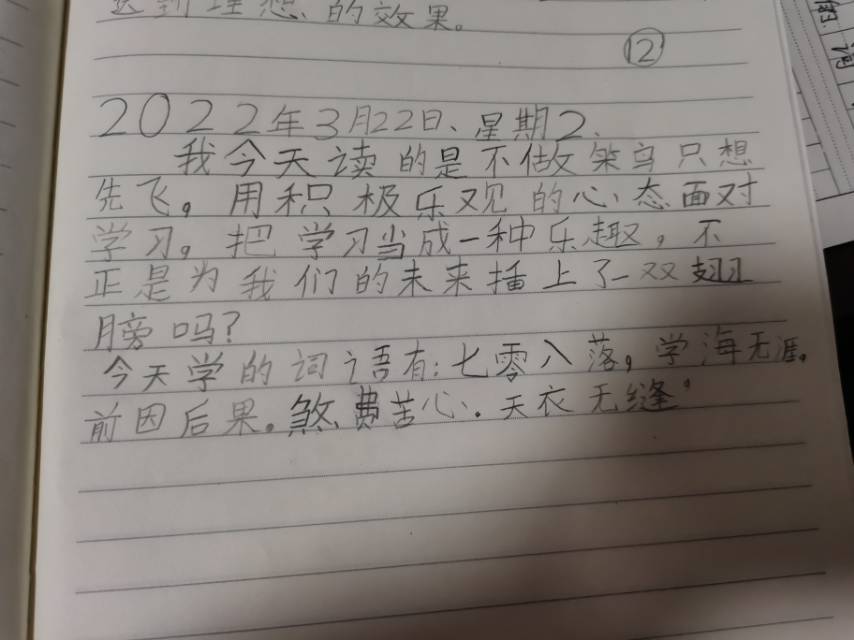 达到理想的效果。
⑫
2022年3月22日、星期2、
我今天读的是不做笨鸟只想
先飞。用积极乐观的心态面对
学习。把学习当成一种乐趣，不
正是为我们的未来插上了一双翅
膀吗？
今天学的词语有：七零八落，学海无涯。
前因后果。煞费苦心．天衣无缝。